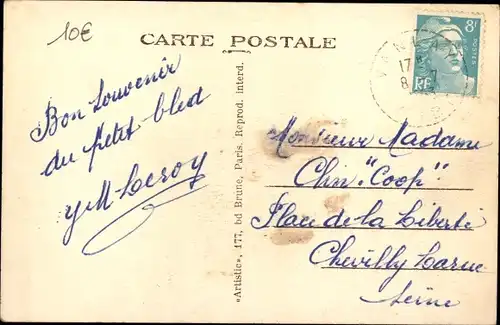 10€
CARTE POSTALE
8F
POSTES
RF
17
8
Bon Souvenir
du petit bled
yM Leroy
«Artistic», 177, bd Brune, Paris. Reprod. interd.
Monsieur Madame
Chin "Coop"
Place de la Liberté
Chevilly Larue
Seine